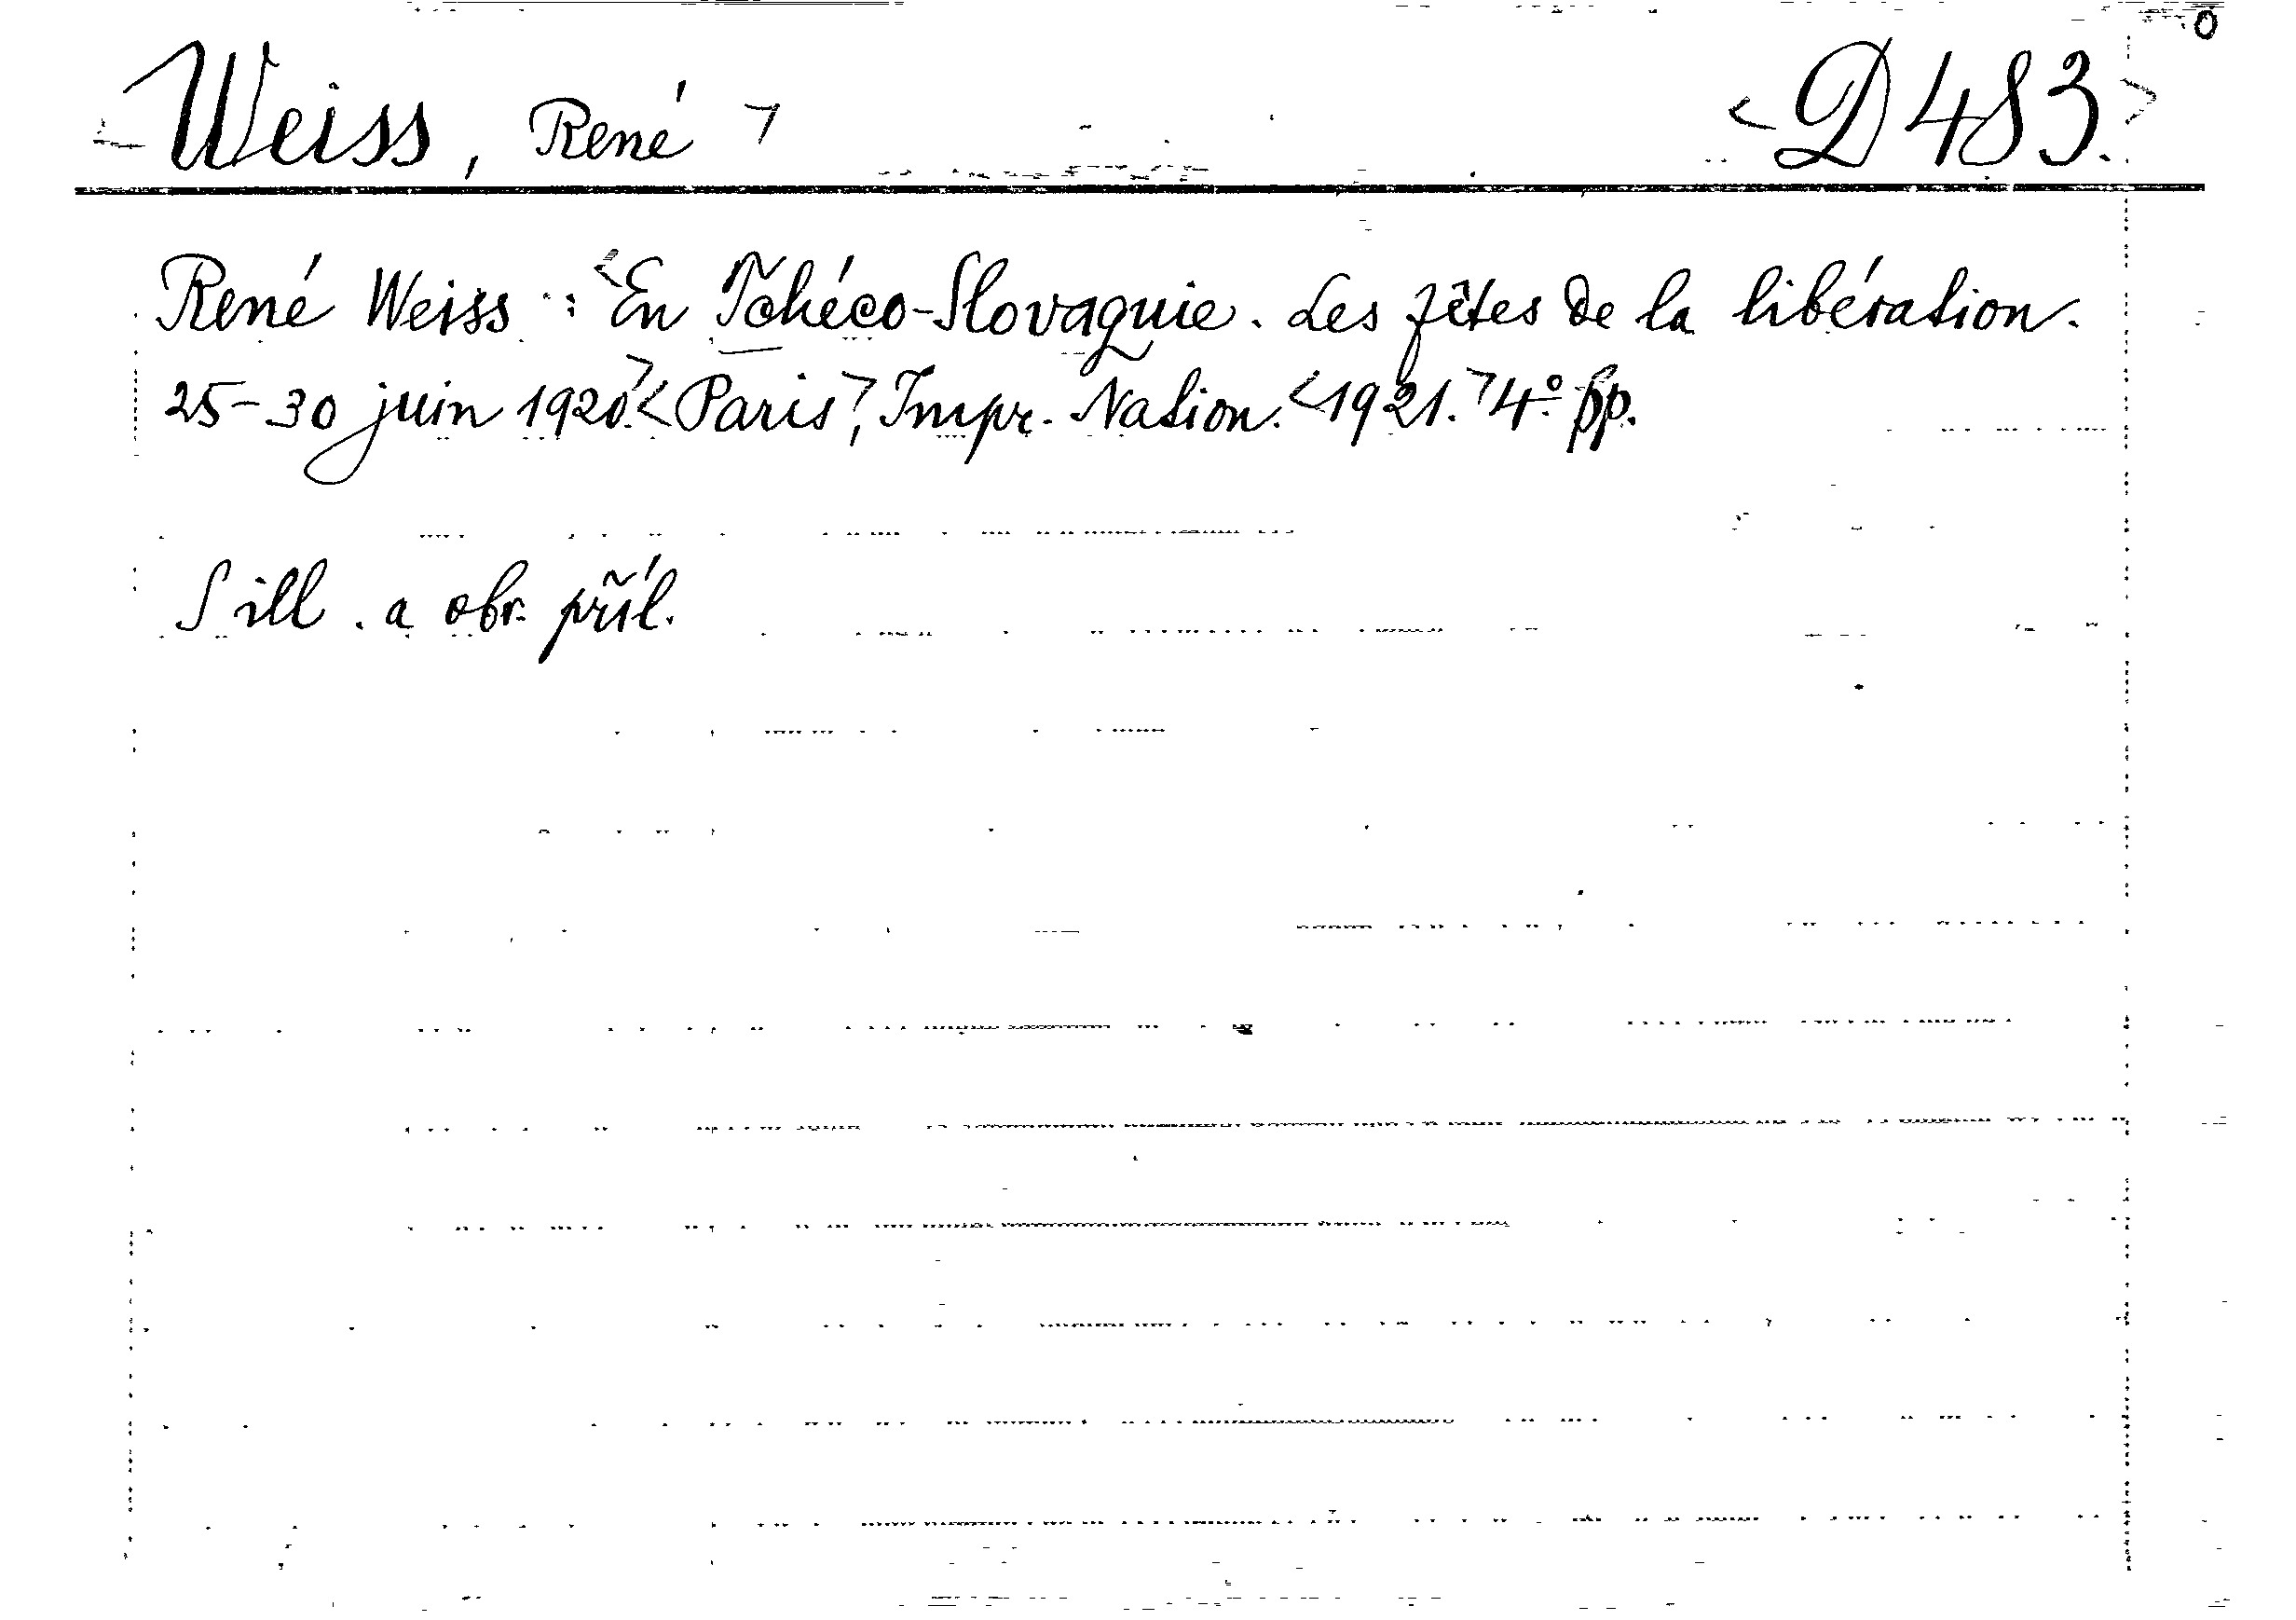 <Weiss, René> <D 483.>
René Weiss: <En Tchéco-Slovaquie. Les fêtes de la libération.
25-30 juin 1920.> <Paris>, Impr. Nation. <1921.> 4º. pp.
S ill. a obr. příl.